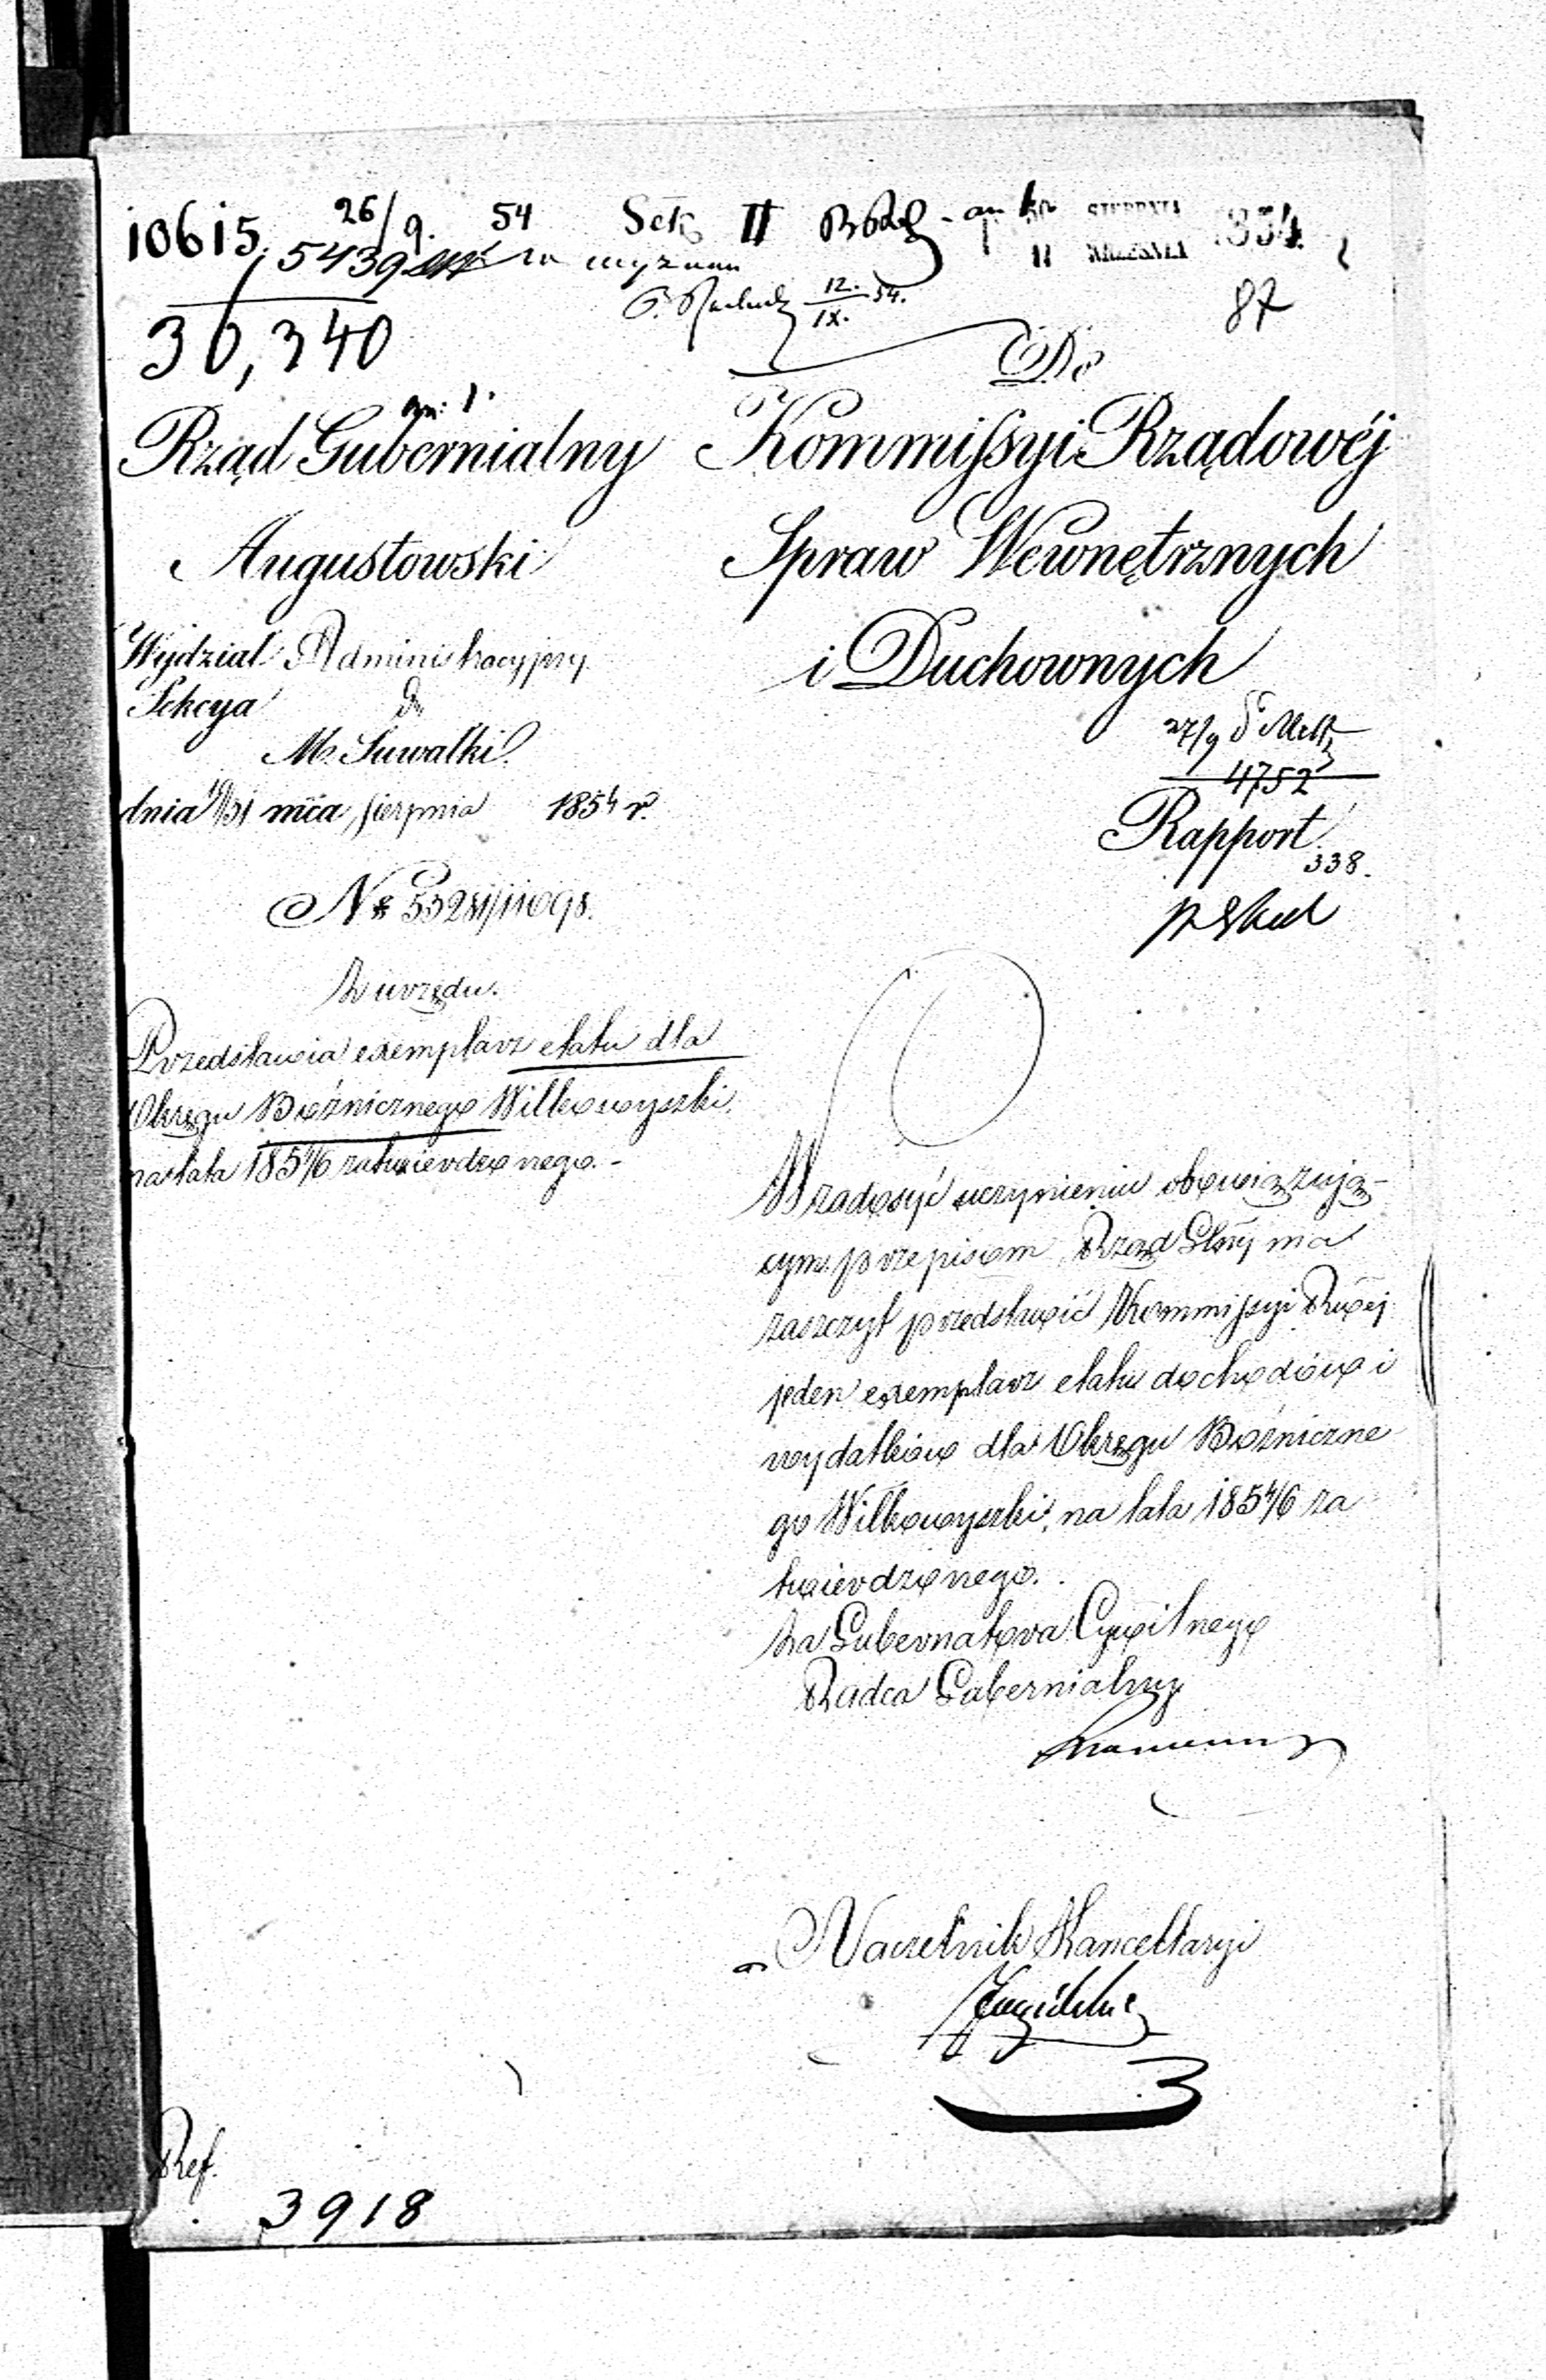 10615. 26/9. 54 Sek II
5439 wyznań
12./IX. 54.
SIERPNIA 1854.
11 WRZEŚNIA
87
30,340
an: 1.
Do
Rząd Gubernialny
Augustowski
Wydział Administracyjny
Sekcya
M. Suwałki
dnia 19/31 mca sierpnia 1854 r.
Z urzędu.
Przedstawia exemplarz etatu dla
Okręgu Bóżnicznego Wilkowyszki
na lata 1854/6 zatwierdzonego. -
Kommissyi Rządowéj
Spraw Wewnętrznych
i Duchownych
27/9
4752
Rapport
338.
W zadosyć uczynieniu obowiązują-
cym przepisom, Rząd Glny ma
zaszczyt przedstawić Kommissyi Rwéj
jeden exemplarz etatu dochodów i
wydatków dla Okręgu Bóżniczne
go Wilkowyszki, na lata 1854/6 za
twierdzonego.
Za Gubernatora Cywilnego
Radca Gubernialny
Naczelnik Kancellaryi
Ref.
3918